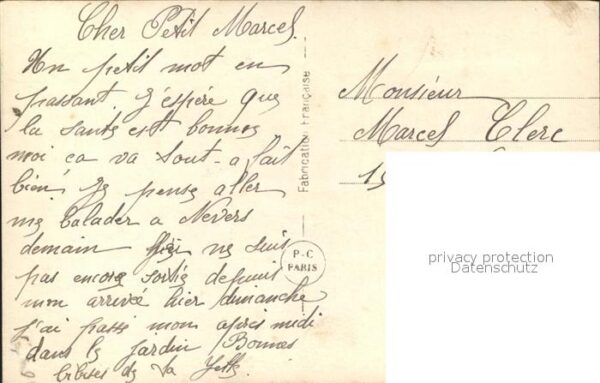 Cher Petit Marcel.
Un petit mot en
passant. J'éspére que
la santé est bonnes
moi ça va tout-a fait
bien. Je pense aller
me balader a Nevers
demain je ne suis
pas encore sortie depuis
mon arrivée hier dimanche
j'ai passé mon apres midi
dans le jardin Bonnes
bibises de ta
Fabrication Française
P-C
PARIS
Monsieur
Marcel Clerc
15
privacy protection
Datenschutz